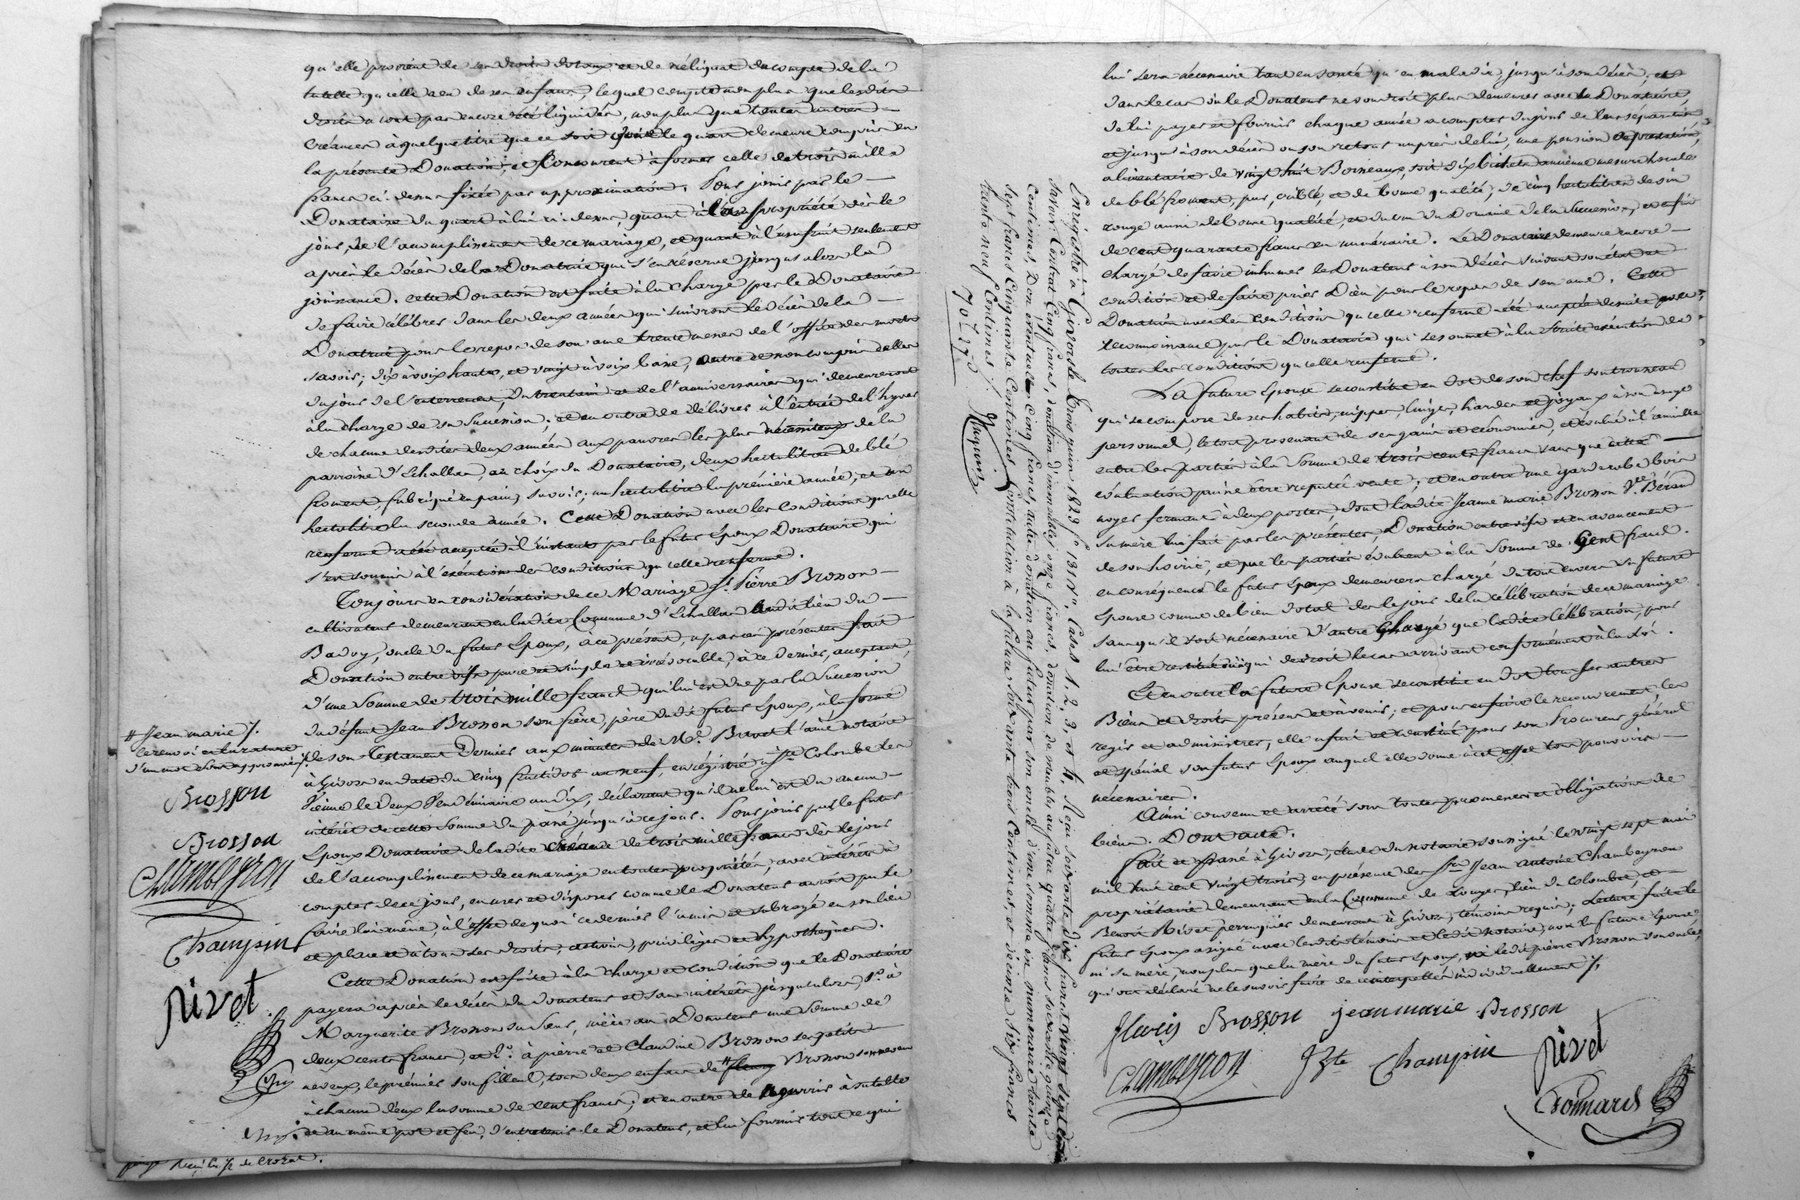 qu'elle provient de ses droits dotaux et de réliquat du compte de la
tutelle qu'elle a eu de ses enfans, lequel compte non plus que lesdits
droits n'ont pas encore été liquidés, non plus que toutes autres
créances à quelque titre que ce soit dont le quart demeure compris en
la présente Donation, et concourent à former celle de trois mille
francs ci-dessus fixée par approximation. Pour jouir par le
Donataire du quart à lui ci-dessus, quant à la propriété dès le
jour de l'accomplissement de ce mariage, et quant à l'usufruit seulement
après le décès de la Donatrice qui s'en réserve jusqu'alors la
jouissance. Cette Donation est faite à la charge par le Donataire
de faire célébrer dans les deux années qui suivront le décès de la
Donatrice pour le repos de son ame trente messes de l'office des morts
savoir; dix à voix haute, et vingt à voix basse, outre et non compris celles
du jour de l'enterrement, du trentain et de l'anniversaire qui demeureront
à la charge de sa succession; et en outre de délivrer à l'entrée de l'hyver
de chacune desdites deux années aux pauvres les plus nécessiteux de la
paroisse d'Echallas, au choix du Donataire, deux hectolitres de blé
froment, fabriqué en pain, savoir; un hectolitre la première année, et un
hectolitre la seconde année. Cette Donation avec les conditions qu'elle
renferme a été acceptée à l'instant par le futur Epoux Donataire qui
s'est soumis à l'exécution des conditions qu'elle renferme.
Toujours en considération de ce Mariage, Sr. Pierre Brosson
cultivateur demeurant en ladite Commune d'Echallas audit lieu du
Badoy, oncle du futur Epoux, à ce présent, a par ces présentes fait
Donation entre vifs pure et simple et irrévocable, à ce dernier, acceptant,
d'une Somme de trois mille francs qui lui est due par la Succession
du défunt Jean Brosson son frère, père dudit futur Epoux, à la forme
de son Testament Dernier aux minutes de Me. Bravet l'ainé notaire
à Givors en date du cinq fructidor an neuf, enregistré à Ste Colombe les
Vienne le Deux Vendémiaire an dix, déclarant qu'il ne lui est dû aucun
intérêt de cette Somme du passé jusqu'à ce jour. Pour jouir par le futur
Epoux Donataire de ladite créance de trois mille francs dès le jour
de l'accomplissement de ce mariage en toute propriété, avec intérêts à
compter de ce jour, en user et disposer comme le Donateur aurait pu le
faire lui-même, à l'effet de quoi ce dernier l'a mis et subrogé en son lieu
et place et à tous ses droits, actions, privilèges et hypothèques.
Cette Donation est faite à la charge et condition que le Donataire
payera après le décès du donateur et sans intérêts jusqu'alors, 1o. à
Marguerite Brosson sa sœur, nièce au Donateur une Somme de
deux cents francs, et 2o. à pierre et Claudine Brosson ses petits
neveux, le premier son filleul, tous deux enfans de # fleury Brosson son neveu
à chacun d'eux la somme de cent francs; et en outre de le nourrir à sa table
et au même pot et feu, d'entretenir le Donateur, et lui fournir tout ce qui
# Jean marie /.
le renvoi et la rature
d'un mot rayé approuvés /.
Brosson
Brosson
Chambeyron
Champin
Rivet
lui sera nécessaire tant en santé qu'en maladie, jusqu'à son décès, et
dans le cas où le Donateur ne voudroit plus demeurer avec le Donataire,
de lui payer et fournir chaque année à compter du jour de leur séparation
et jusqu'à son décès ou son retour auprès de lui, une pension de prestation
alimentaire de vingt huit Boisseaux, soit dix bichets ancienne mesure locale
de blé froment, pur, criblé, et de bonne qualité; de cinq hectolitres de vin
rouge aussi de bonne qualité, et du crû du Domaine de la Succession, et enfin
de cent quarante francs en numéraire. Le Donataire demeure encore
chargé de faire inhumer le Donateur à son décès suivant son état et
condition et de faire prier Dieu pour le repos de son ame. Cette
Donation avec les conditions qu'elle renferme a été acceptée de suite avec
reconnoissance par le Donataire qui se soumet à la stricte exécution de
toutes les conditions qu'elle renferme.
La future Epouse se constitue en dot de son chef son trousseau
qui se compose de ses habits, nippes, linges, hardes et joyaux à son usage
personnel, le tout provenant de ses gains et économies, et évalué à l'amiable
entre les parties à la Somme de trois cents francs sans que cette
évaluation puisse être réputée vente; et en outre une garderobe bois
noyer fermant à deux portes, dont ladite Jeanne marie Brosson Ve. Béraud
sa mère lui fait par les présentes, Donation entre vifs et en avancement
de son hoirie, et que les parties évaluent à la Somme de Cent francs.
en conséquence le futur Epoux demeurera chargé du tout envers sa future
Epouse comme de bien dotal dès le jour de la célébration de ce mariage
sans qu'il soit nécessaire d'autre charge que ladite célébration, pour
lui être restitué ou à qui de droit le cas arrivant conformément à la loi.
Et en outre la future Epouse se constitue en dot tous ses autres
Biens et droits présens et à venir; et pour en faire le recouvrement, les
régir et administrer, elle a fait et constitué pour son Procureur général
et spécial son futur Epoux auquel elle donne à cet effet tous pouvoirs
nécessaires.
Ainsi convenu et arrêté sous toutes promesses et obligations de
biens. Dont acte.
fait et passé à Givors, étude du notaire soussigné le vingt sept mai
mil huit cent vingt trois, en présence de Srs. Jean antoine Chambeyron
propriétaire demeurant en la Commune de Longes, lieu du Colombet et
Benoit Rivet perruquier demeurant à Givors, témoins requis; Lecture faite le
futur Epoux a signé avec lesdits témoins et ledit notaire, non la future Epouse
ni sa mère, non plus que la mère du futur Epoux, ni ledit pierre Brosson son oncle,
qui ont déclaré ne le savoir faire de ce interpellés individuellement /.
fleuris Brosson jean marie Brosson
Chambeyron Champin Rivet
Enregistré à Givors le trois juin 1823 fo. 181 Vo. Cases 1. 2. 3. et 4, Reçu soixante dix francs vingt sept centimes
savoir; Contrat Cinq francs, donation d'immeubles onze francs, donation de meubles au futur quatre francs soixante quinze
Centimes, Don éventuel Cinq francs, autre donation au futur par son oncle d'une somme en numéraire trente
sept francs Cinquante Centimes, Constitution à la future soixante trois Centimes, et décime six francs
trente neuf Centimes /.
70 f. 27 c.